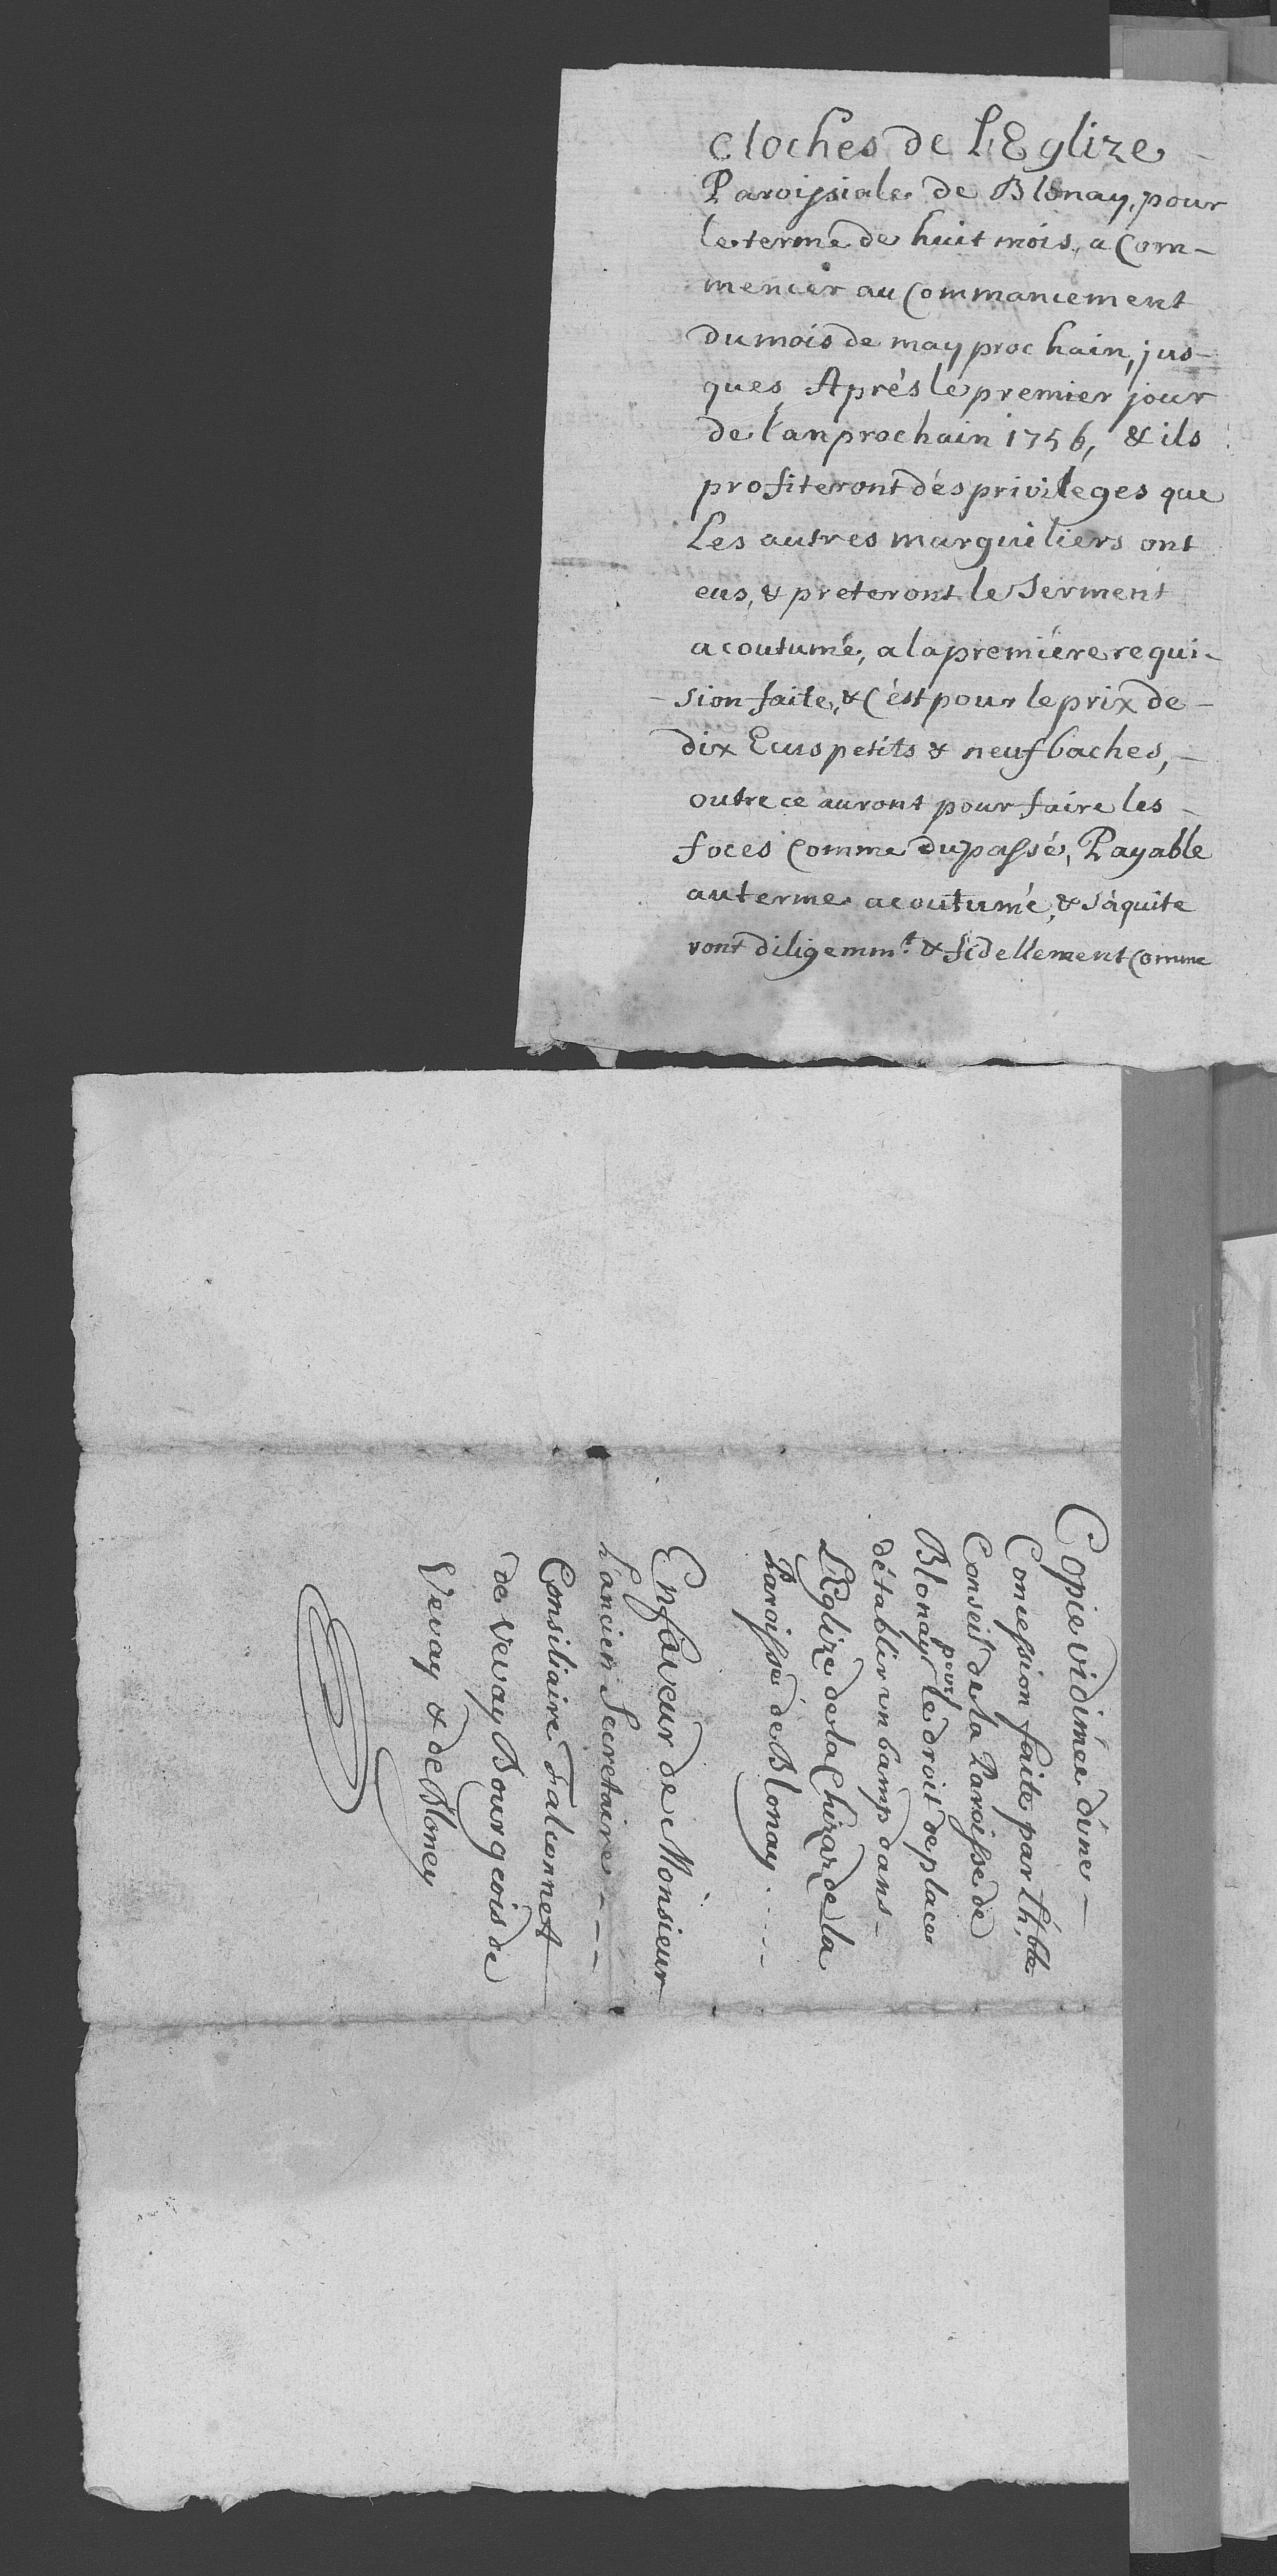 Cloches de L'Eglize
Paroissiale de Blonay, pour
le terme de huit mois, a Com-
mencer au Commancement
du mois de may prochain, jus-
ques Aprés le premier jour
de l'an prochain 1756, & ils
profiteront des privileges que
Les autres marguiliers ont
eus, & preteront le Serment
acoutumé, a la premiére requi-
sion faite, & C'est pour le prix de
dix Ecus petits & neuf baches,
outre ce auront pour faire les
foces Comme du passé, Payable
au terme acoutumé, & s'aquite
ront diligemmt. & fidellement Comme
Copie vidimée d'une
Concession faite par l'h.ble
Conseil de la Paroisse de
Blonay pour le droit de placer
d'établir un bamp dans
L'Eglize de la Chiraz de la
Paroisse de Blonay
En faveur de Monsieur
L'ancien Secretaire
Consiliaire Falconnet
de Vevay Bourgeois de
Vevay & de Bloney